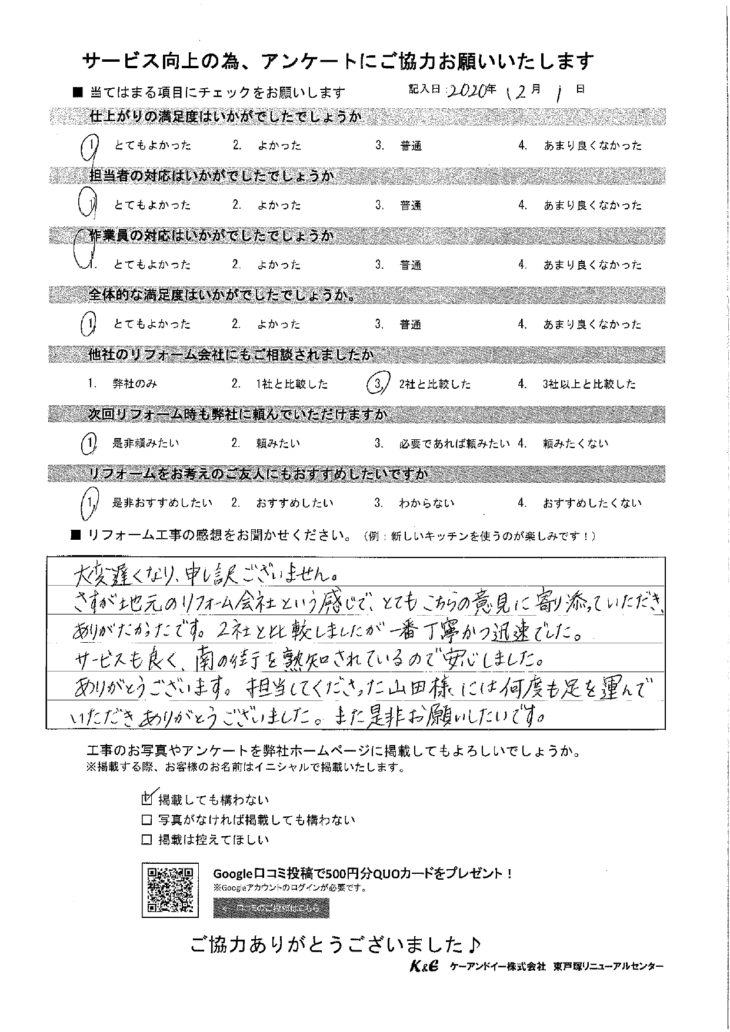 サービス向上の為、アンケートにご協力お願いいたします
■ 当てはまる項目にチェックをお願いします 記入日:2020年 12月 1日
仕上がりの満足度はいかがでしたでしょうか
1. とてもよかった 2. よかった 3. 普通 4. あまり良くなかった
担当者の対応はいかがでしたでしょうか
1. とてもよかった 2. よかった 3. 普通 4. あまり良くなかった
作業員の対応はいかがでしたでしょうか
1. とてもよかった 2. よかった 3. 普通 4. あまり良くなかった
全体的な満足度はいかがでしたでしょうか。
1. とてもよかった 2. よかった 3. 普通 4. あまり良くなかった
他社のリフォーム会社にもご相談されましたか
1. 弊社のみ 2. 1社と比較した 3. 2社と比較した 4. 3社以上と比較した
次回リフォーム時も弊社に頼んでいただけますか
1. 是非頼みたい 2. 頼みたい 3. 必要であれば頼みたい 4. 頼みたくない
リフォームをお考えのご友人にもおすすめしたいですか
1. 是非おすすめしたい 2. おすすめしたい 3. わからない 4. おすすめしたくない
■ リフォーム工事の感想をお聞かせください。（例：新しいキッチンを使うのが楽しみです！）
大変遅くなり、申し訳ございません。
さすが地元のリフォーム会社という感じで、とてもこちらの意見に寄り添っていただき、
ありがたかったです。2社と比較しましたが一番丁寧かつ迅速でした。
サービスも良く、南の街を熟知されているので安心しました。
ありがとうございます。担当してくださった山田様には何度も足を運んで
いただきありがとうございました。また是非お願いしたいです。
工事のお写真やアンケートを弊社ホームページに掲載してもよろしいでしょうか。
※掲載する際、お客様のお名前はイニシャルで掲載いたします。
☑ 掲載しても構わない
□ 写真がなければ掲載しても構わない
□ 掲載は控えてほしい
Google口コミ投稿で500円分QUOカードをプレゼント！
※Googleアカウントのログインが必要です。
口コミのご投稿はこちら
ご協力ありがとうございました♪
K&E ケーアンドイー株式会社 東戸塚リニューアルセンター